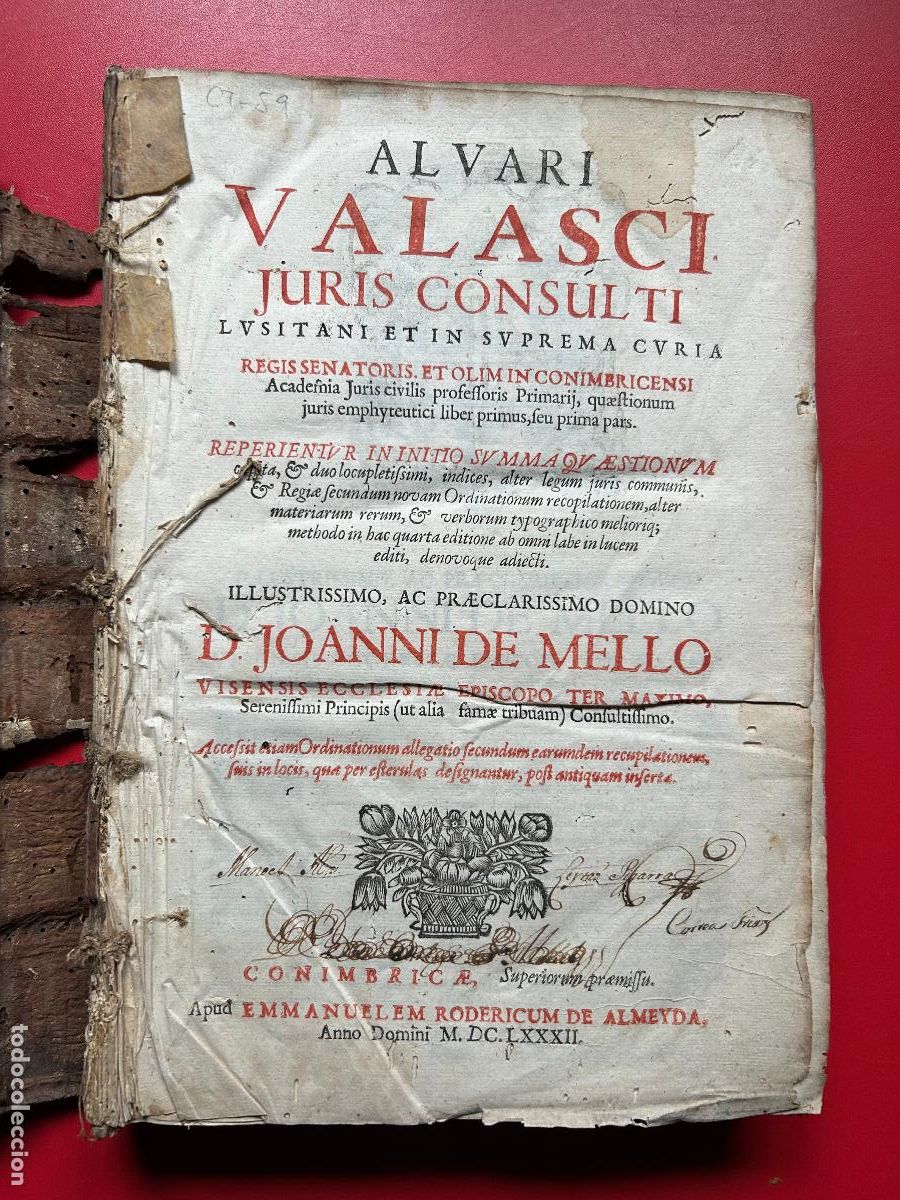 C7-59
ALVARI
VALASCI
JURIS CONSULTI
LVSITANI ET IN SVPREMA CVRIA
REGIS SENATORIS. ET OLIM IN CONIMBRICENSI
Academia Juris civilis profeſſoris Primarij, quæſtionum
juris emphyteutici liber primus, ſeu prima pars.
REPERIENTVR IN INITIO SVMMA QVÆSTIONVM
& duo locupletiſsimi, indices, alter legum juris communis,
& Regiæ ſecundum novam Ordinationum recopilationem, alter
materiarum rerum, & verborum typographico melioriq;
methodo in hac quarta editione ab omni labe in lucem
editi, denovoque adiecti.
ILLUSTRISSIMO, AC PRÆCLARISSIMO DOMINO
D. JOANNI DE MELLO
VISENSIS ECCLESIÆ EPISCOPO TER MAXIMO,
Sereniſſimi Principis (ut alia famæ tribuam) Conſultiſſimo.
Acceſsit etiam Ordinationum allegatio ſecundum earumdem recupilationem,
ſuis in locis, quæ per eſterulas deſignantur, poſt antiquam inſertæ.
Manoel
Correa
CONIMBRICÆ, Superiorum præmiſſu.
Apud EMMANUELEM RODERICUM DE ALMEYDA,
Anno Domini M. DC. LXXXII.
todocoleccion